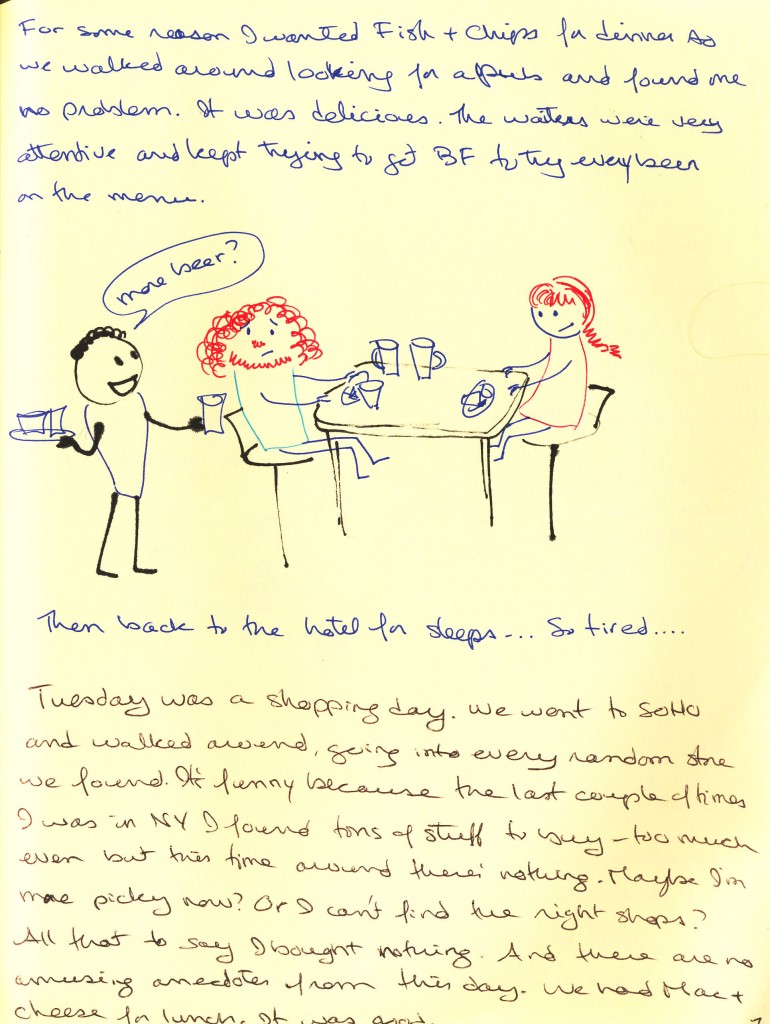 For some reason I wanted Fish + Chips for dinner so
we walked around looking for a pub and found one
no problem. It was delicious. The waiters were very
attentive and kept trying to get BF to try every beer
on the menu.
more beer?
Then back to the hotel for sleeps.... So tired....
Tuesday was a shopping day. We went to SoHo
and walked around, going into every random store
we found. It's funny because the last couple of times
I was in NY I found tons of stuff to buy - too much
even but this time around there's nothing. Maybe I'm
more picky now? Or I can't find the right shops?
All that to say I bought nothing. And there are no
amusing anecdotes from this day. We had Mac +
cheese for lunch. It was good.